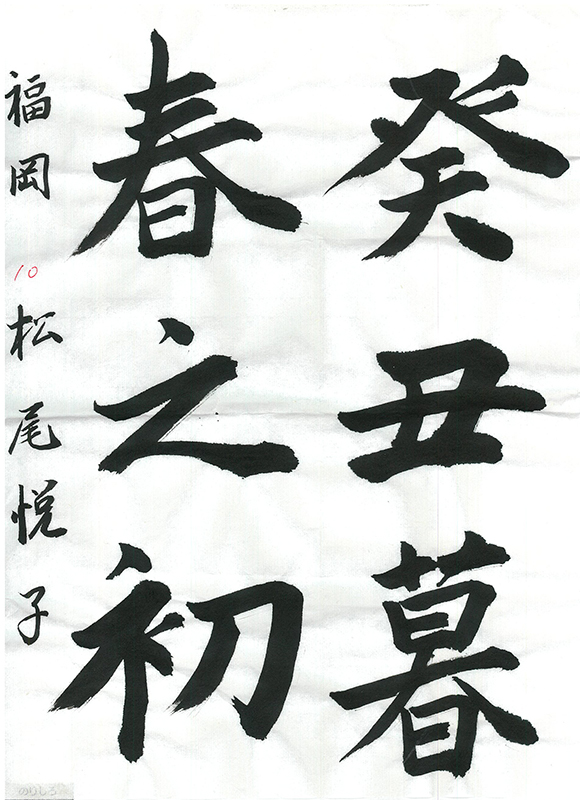 癸丑暮
春之初
福岡 10 松尾悦子
のりしろ